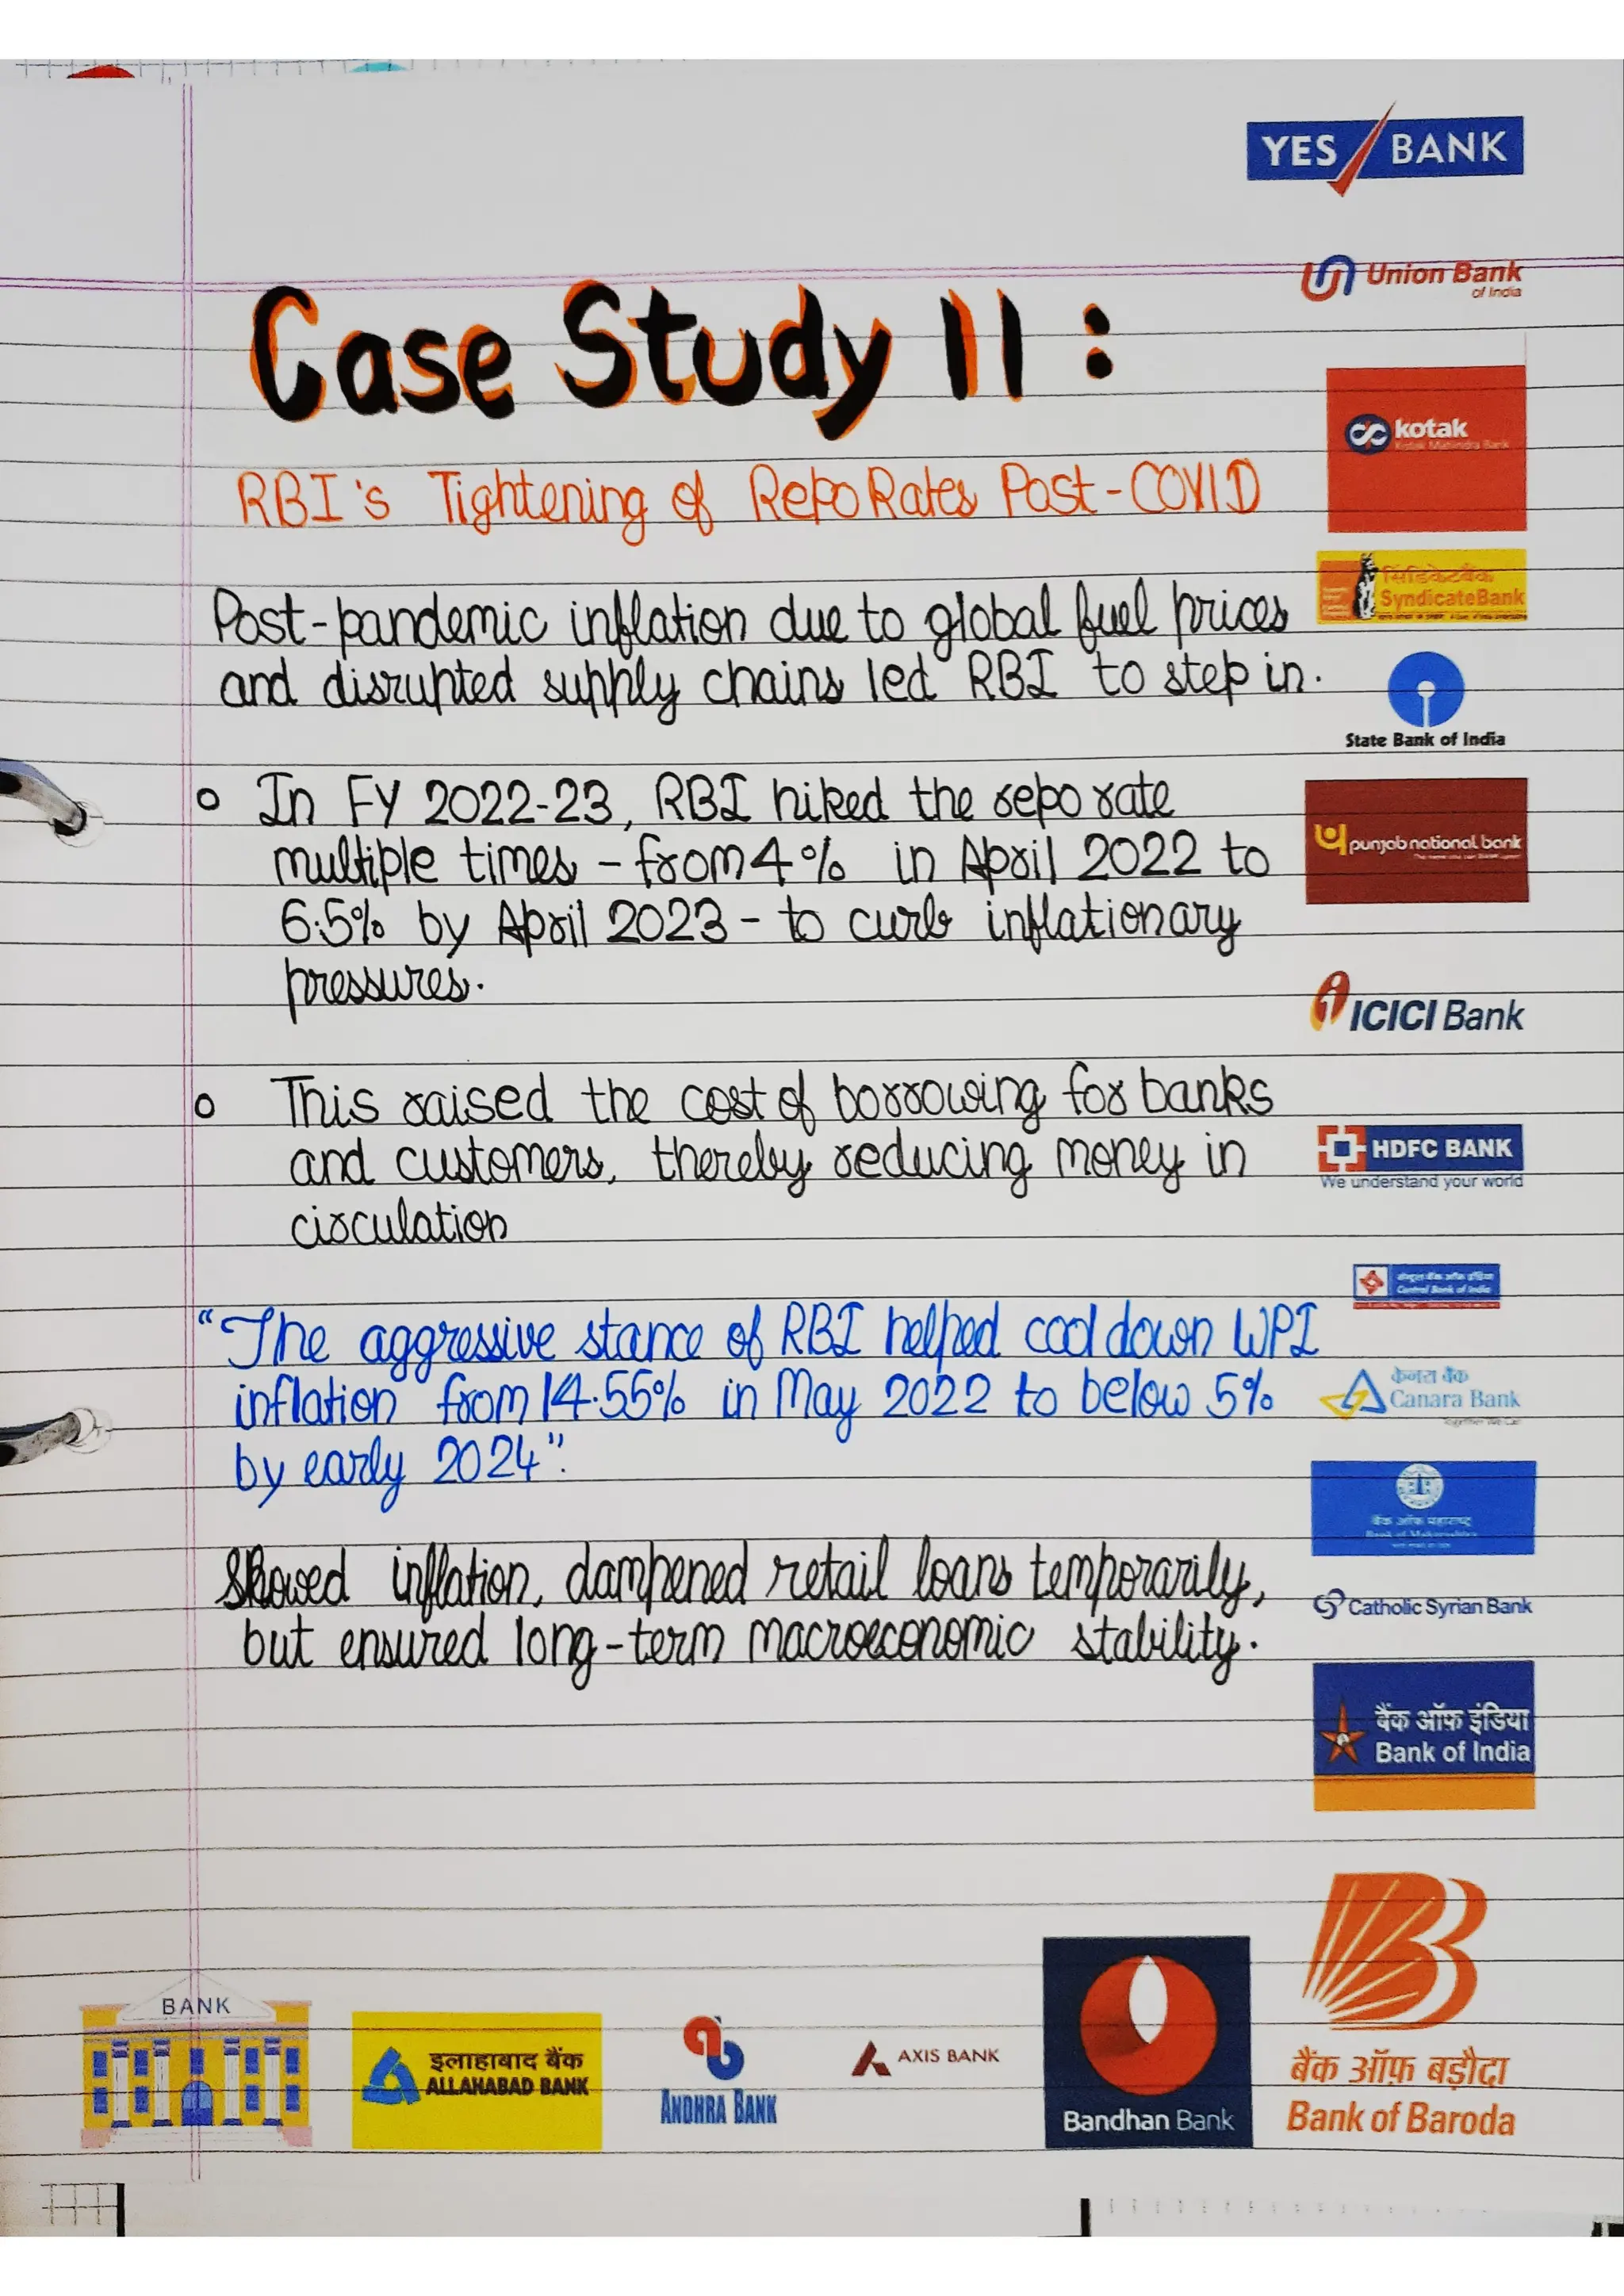 YES BANK
Union Bank
of India
Case Study II :
kotak
Kotak Mahindra Bank
RBI's Tightening of Repo Rates Post-COVID
सिंडिकेटबैंक
SyndicateBank
Post-pandemic inflation due to global fuel prices
and disrupted supply chains led RBI to step in.
State Bank of India
In FY 2022-23, RBI hiked the repo rate
multiple times - from 4% in April 2022 to
6.5% by April 2023 - to curb inflationary
pressures.
punjab national bank
ICICI Bank
This raised the cost of borrowing for banks
and customers, thereby reducing money in
circulation
HDFC BANK
We understand your world
Central Bank of India
"The aggressive stance of RBI helped cool down WPI
inflation from 14.55% in May 2022 to below 5%
by early 2024".
केनरा बैंक
Canara Bank
Together We Can
बैंक ऑफ महाराष्ट्र
Bank of Maharashtra
Slowed inflation, dampened retail loans temporarily,
but ensured long-term macroeconomic stability.
Catholic Syrian Bank
बैंक ऑफ़ इंडिया
Bank of India
BANK
इलाहाबाद बैंक
ALLAHABAD BANK
ANDHRA BANK
AXIS BANK
Bandhan Bank
बैंक ऑफ़ बड़ौदा
Bank of Baroda